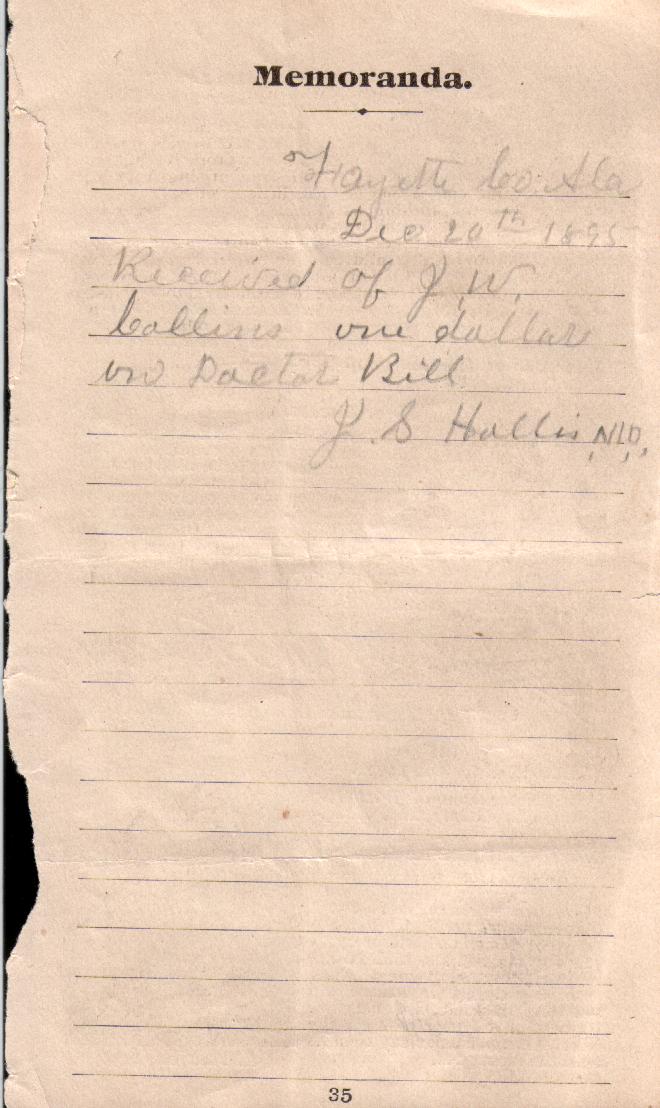 Memoranda.
Fayette Co. Ala
Dec 20th 1895
Received of J. W.
Collins one dollar
on Doctor Bill
J. S Hollis M.D.
35